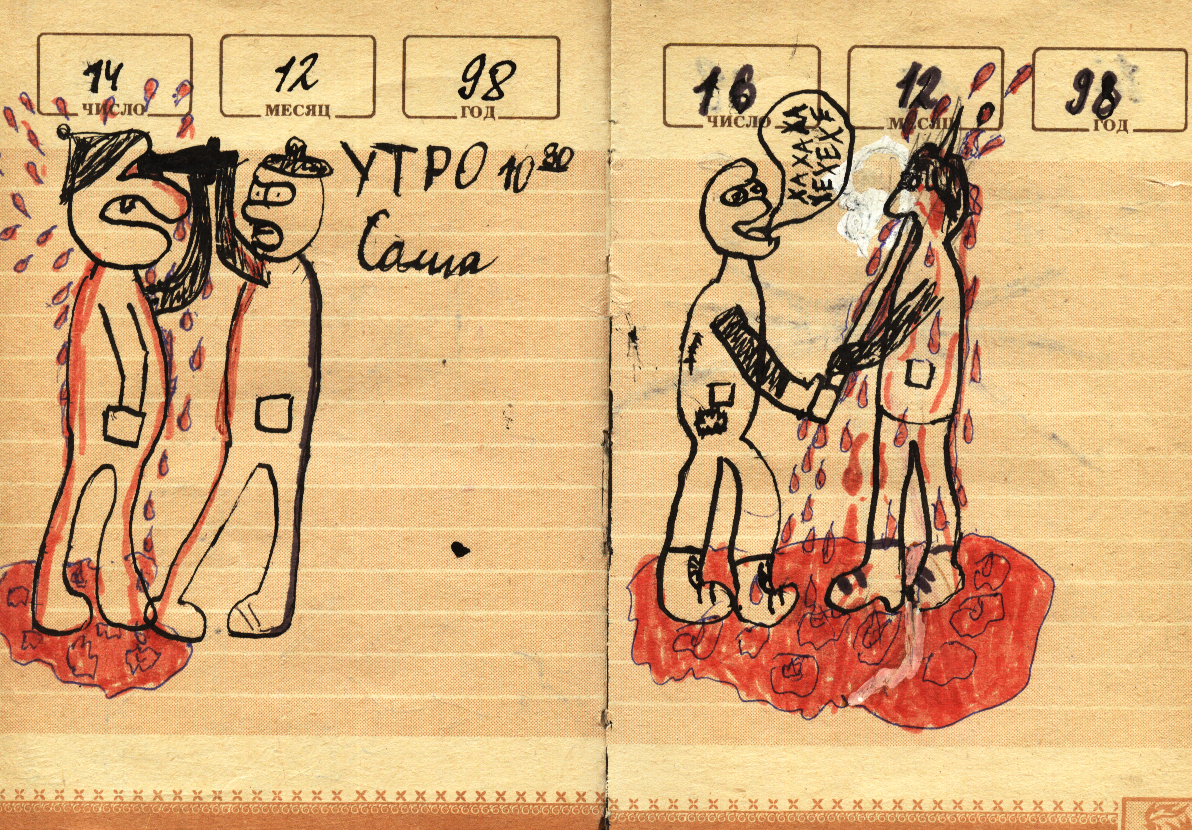 14 12 98
ЧИСЛО МЕСЯЦ ГОД
УТРО 10 30
Саша
16 12 98
ЧИСЛО МЕСЯЦ ГОД
ХАХАХА
ХЕХЕХЕ